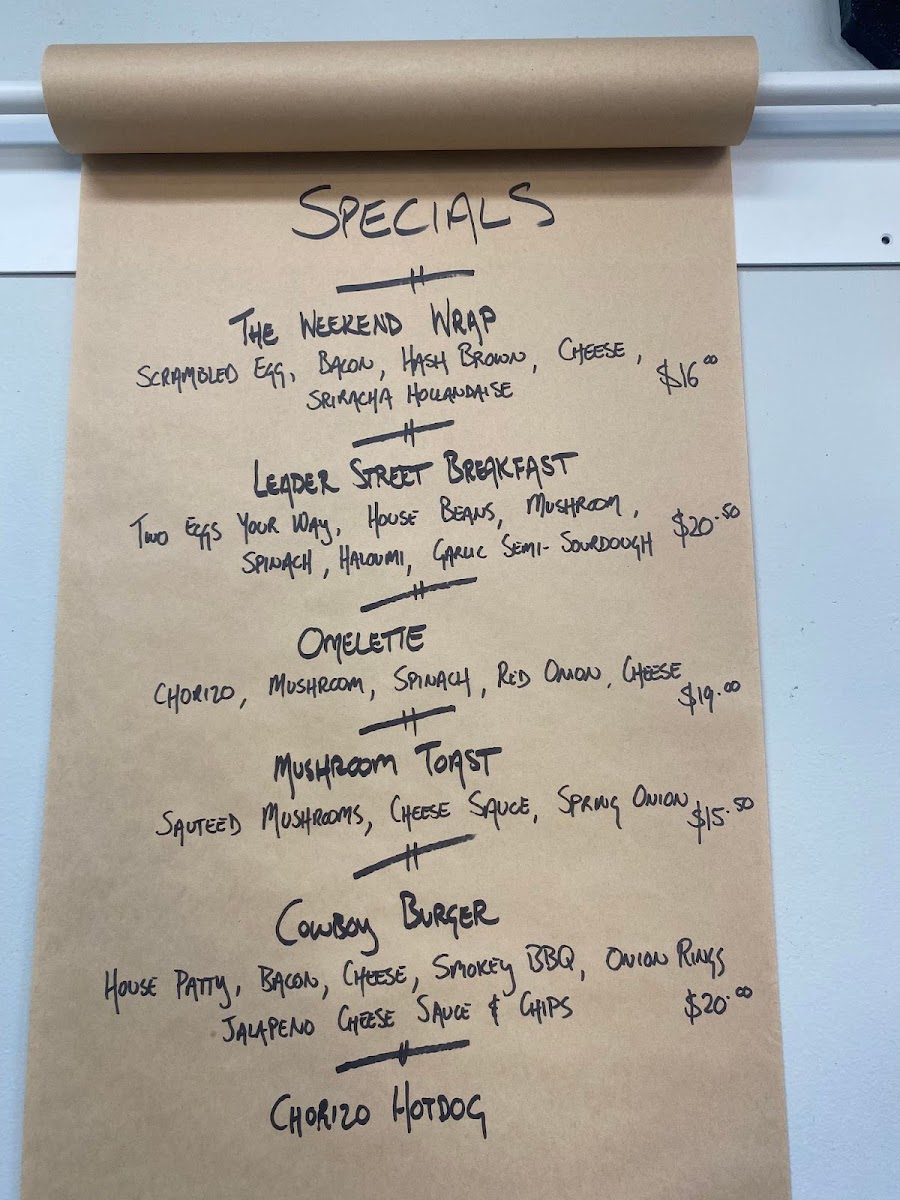 SPECIALS
THE WEEKEND WRAP
SCRAMBLED EGG, BACON, HASH BROWN, CHEESE,
SRIRACHA HOLLANDAISE $16.00
LEADER STREET BREAKFAST
TWO EGGS YOUR WAY, HOUSE BEANS, MUSHROOM,
SPINACH, HALOUMI, GARLIC SEMI-SOURDOUGH $20.50
OMELETTE
CHORIZO, MUSHROOM, SPINACH, RED ONION, CHEESE
$19.00
MUSHROOM TOAST
SAUTEED MUSHROOMS, CHEESE SAUCE, SPRING ONION $15.50
COWBOY BURGER
HOUSE PATTY, BACON, CHEESE, SMOKEY BBQ, ONION RINGS
JALAPENO CHEESE SAUCE & CHIPS $20.00
CHORIZO HOTDOG